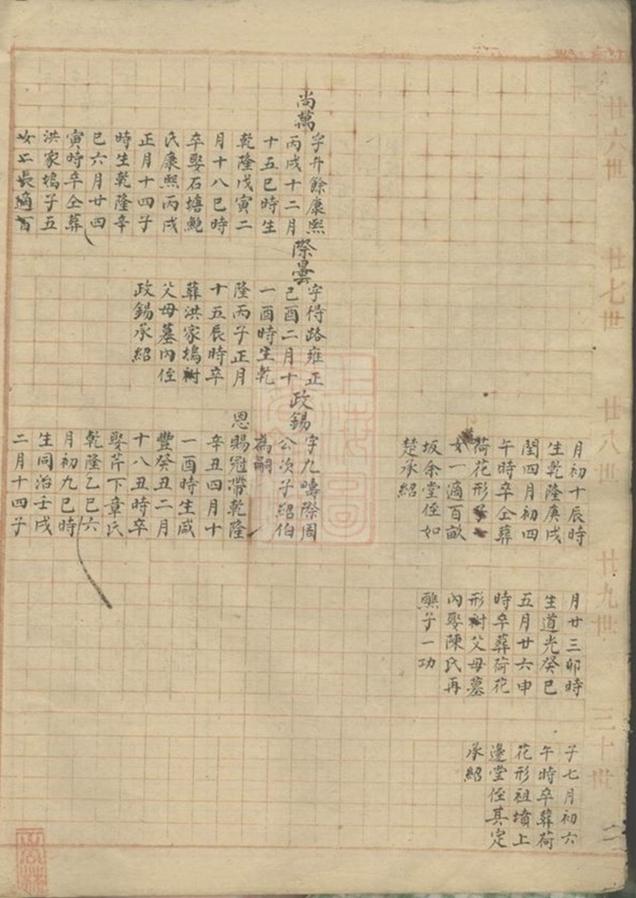 廿六世
廿七世
廿八世
廿九世
三十世
月初十辰時
生乾隆庚戌
閏四月初四
午時卒仝葬
荷花形子
女一適百畝
坂余堂侄如
楚承紹
月廿三卯時
生道光癸巳
五月廿六申
時卒葬荷花
形祔父母墓
內娶陳氏再
醮子一功
子七月初六
午時卒葬荷
花形祖墳上
邊堂侄其定
承紹
尚萬
字升餘康熙
丙戌十二月
十五巳時生
乾隆戊寅二
月十八巳時
卒娶石墻鮑
氏康熙丙戌
正月十四子
時生乾隆辛
巳六月廿四
寅時卒仝葬
洪家塢子五
女二長適百
際曇
字得路雍正
己酉二月十
一酉時生乾
隆丙子正月
十五辰時卒
葬洪家塢祔
父母墓內侄
政錫承紹
政錫
字九疇際周
公次子紹伯
為嗣
恩賜冠帶乾隆
辛丑四月十
一酉時生咸
豐癸丑二月
十八丑時卒
娶芹下章氏
乾隆乙巳六
月初九巳時
生同治壬戌
二月十四子